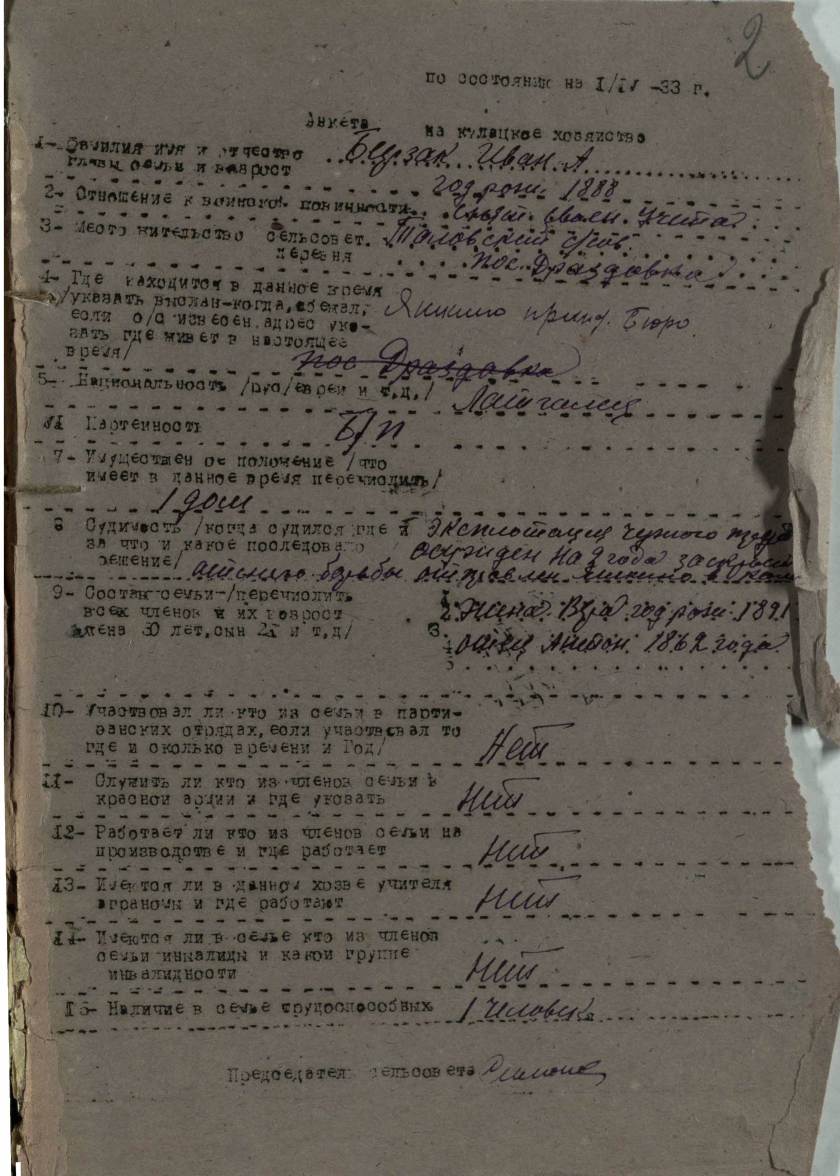 2
по состоянию на I/IV -33 г.
Анкета на кулацкое хозяйство
1- Фамилия имя и отчество
главы семьи и возрост
Берзак Иван А
год рожд. 1888
2- Отношение к воинской повинности
Снят. с воен. учета
3- Место жительство сельсовет.
деревня
Таловский с/сов
пос. Драздовка
4- Где находится в данное время
/указать выслан-когда, сбежал,
если о/с извесен, адрес ука-
зать где живет в настоящее
время/
Яшкино принд. Бюро
пос Драздовка
5- Национальность /рус/евреи и т.д./
Латгалец
VI Партейность
Б/п
7- Имуществен ое положение /что
имеет в данное время перечислить/
1 дом
8 Судимость /когда судился где и
за что и какое последовало
решение/
Эксплотация чужого труда
осужден на 2 года за
борьбы отправлен Яшкино
9- Состав семьи-/перечислить
всех членов и их возрост
жена 30 лет, сын 21 и т,д/
2. жена Вера год рожд. 1891
3. отец Антон. 1862 года
10- Участвовал ли кто из семьи в парти-
занских отрядах, если участвовал то
где и сколько времени и Год/
Нет
11- Служить ли кто из членов семьи в
красной армии и где указать
Нет
12- Работает ли кто из членов семьи на
производстве и где работает
Нет
13- Имеются ли в данном хозве учителя
аграномы и где работают
Нет
14- Имеются ли в семье кто из членов
семьи инвалиды и какой группе
инвалидности
Нет
15- Наличие в семье трудоспособных
1 человек
Председатель сельсовета